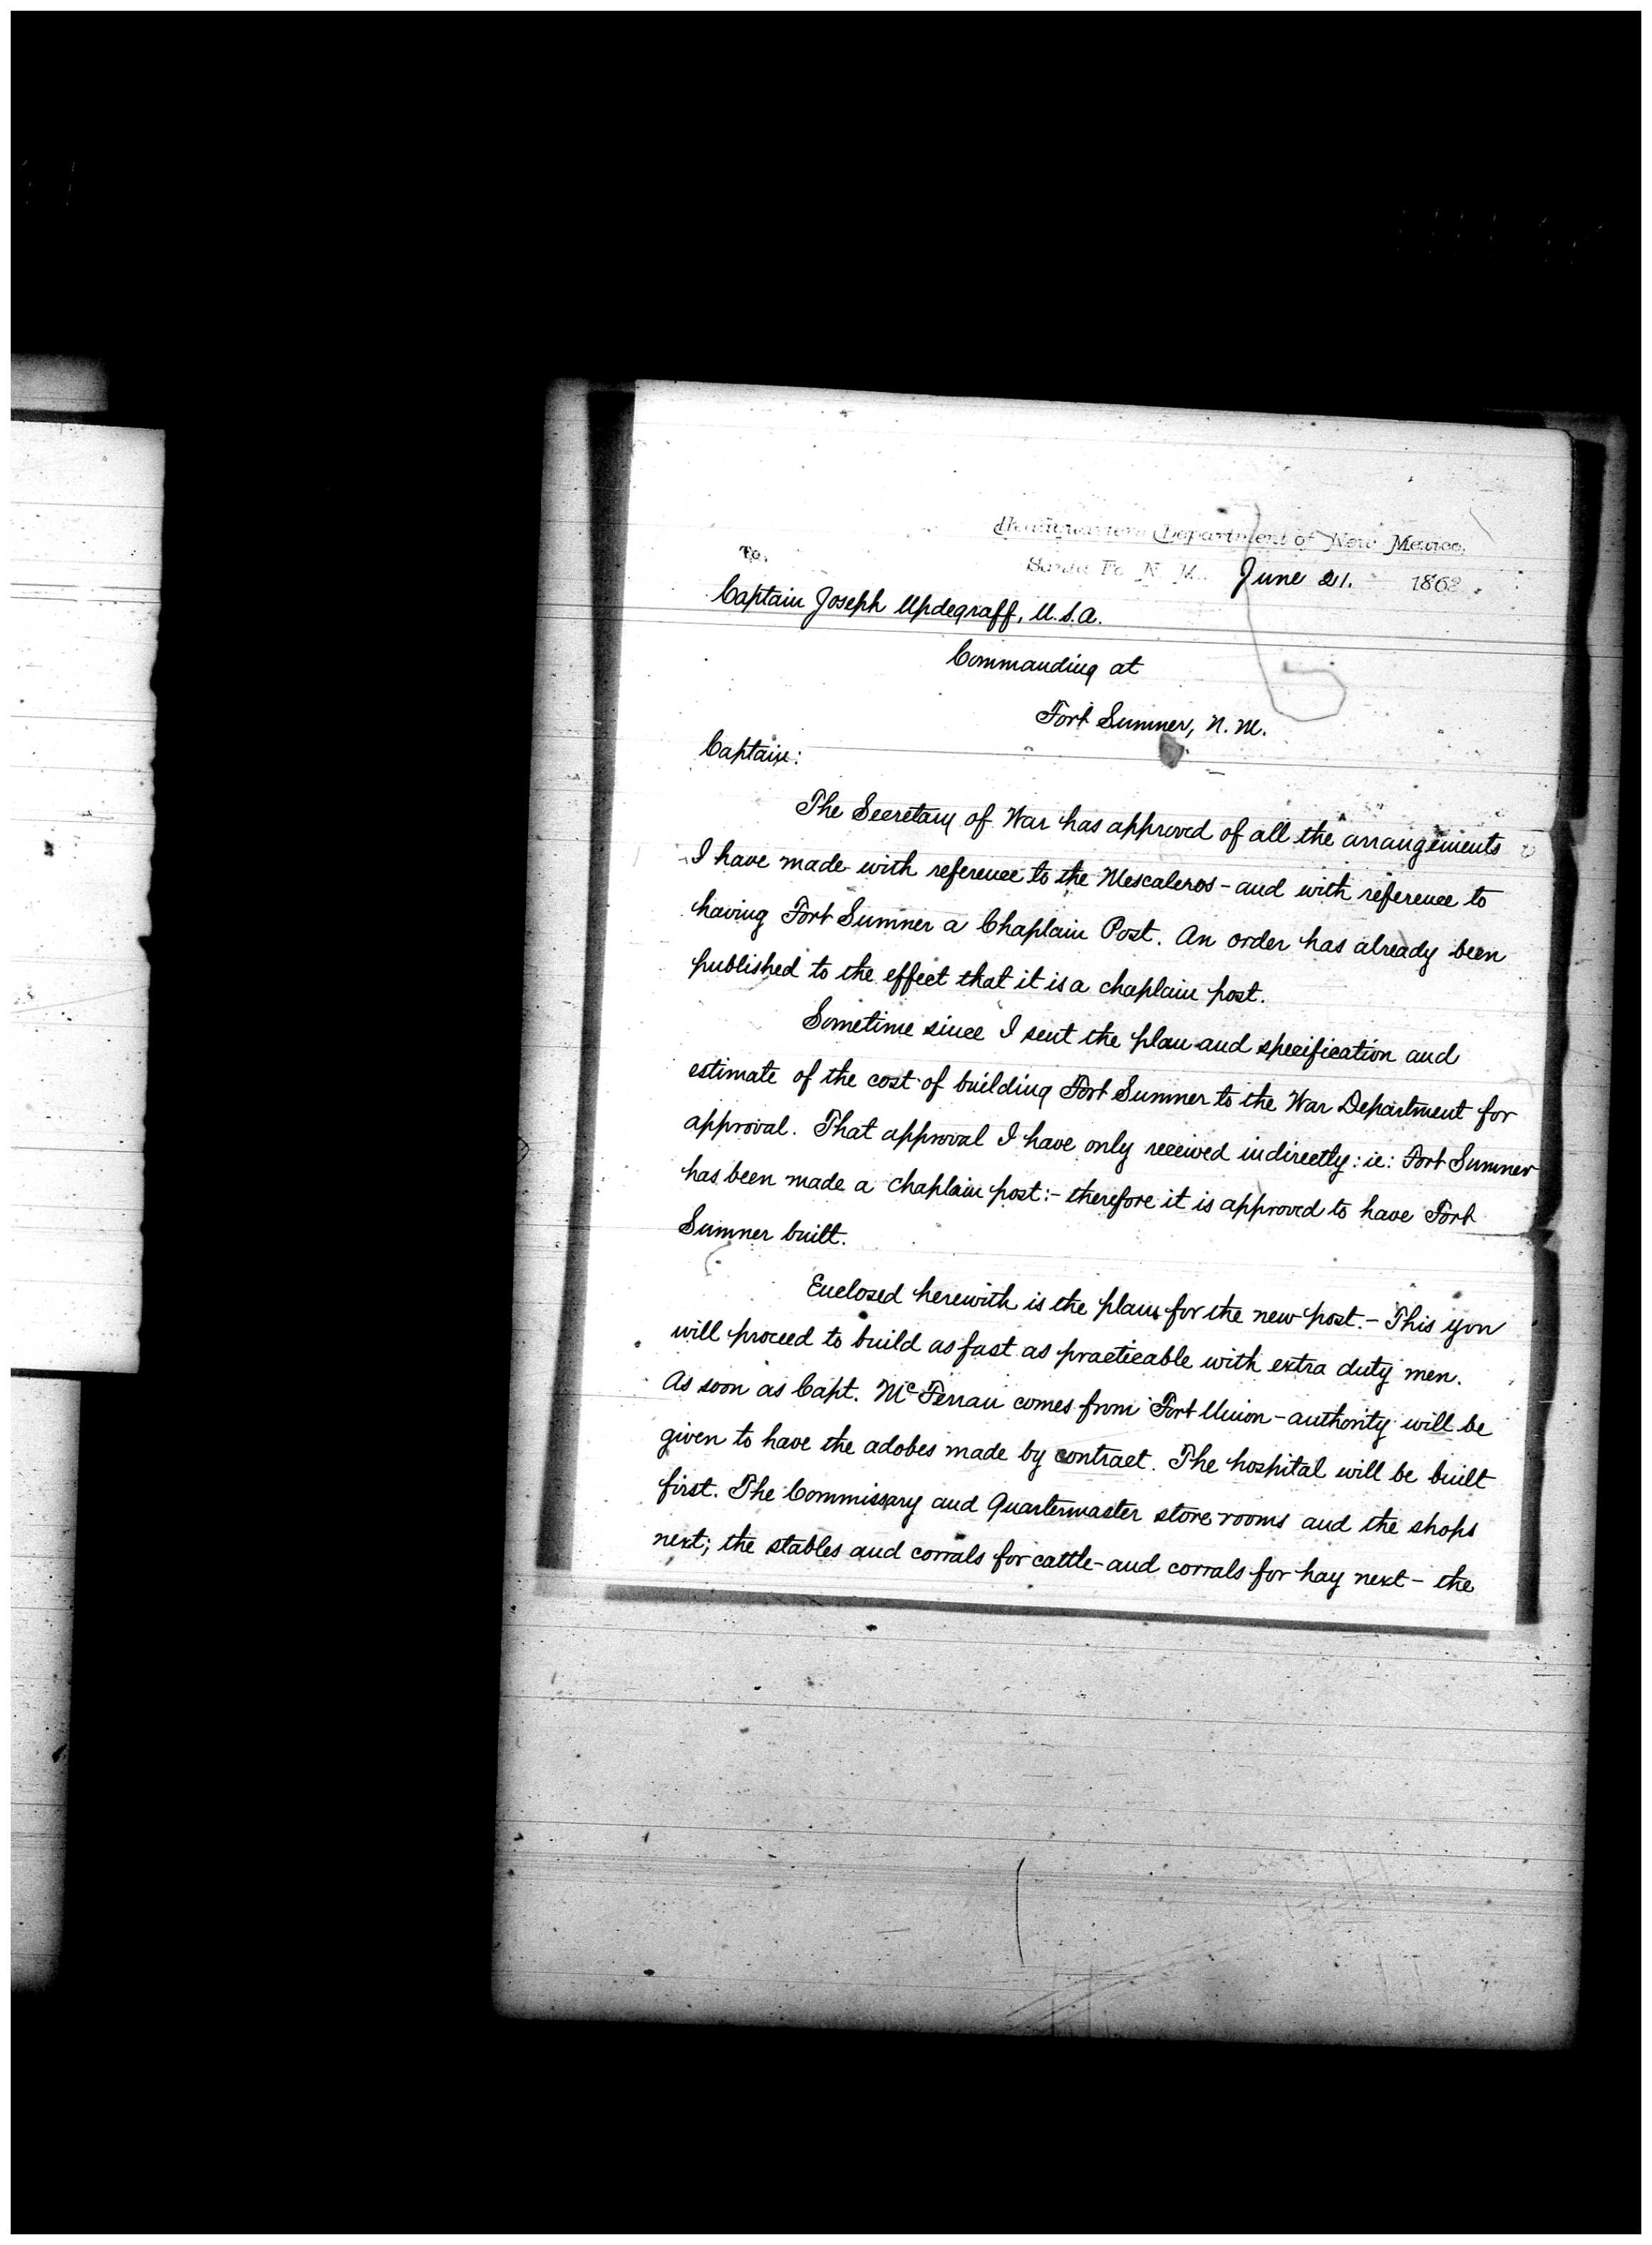 Headquarters Department of New Mexico,
Santa Fe N. M. June 21. 1862.
To.
Captain Joseph Updegraff, U.S.A.
Commanding at
Fort Sumner, N. M.
Captain:
The Secretary of War has approved of all the arrangements
I have made with reference to the Mescaleros - and with reference to
having Fort Sumner a Chaplain Post. An order has already been
published to the effect that it is a chaplain post.
Sometime since I sent the plan and specification and
estimate of the cost of building Fort Sumner to the War Department for
approval. That approval I have only received indirectly: ie: Fort Sumner
has been made a chaplain post:- therefore it is approved to have Fort
Sumner built.
Enclosed herewith is the plans for the new post. - This you
will proceed to build as fast as practicable with extra duty men.
As soon as Capt. McFerran comes from Fort Union - authority will be
given to have the adobes made by contract. The hospital will be built
first. The Commissary and Quartermaster store rooms and the shops
next; the stables and corrals for cattle - and corrals for hay next - the